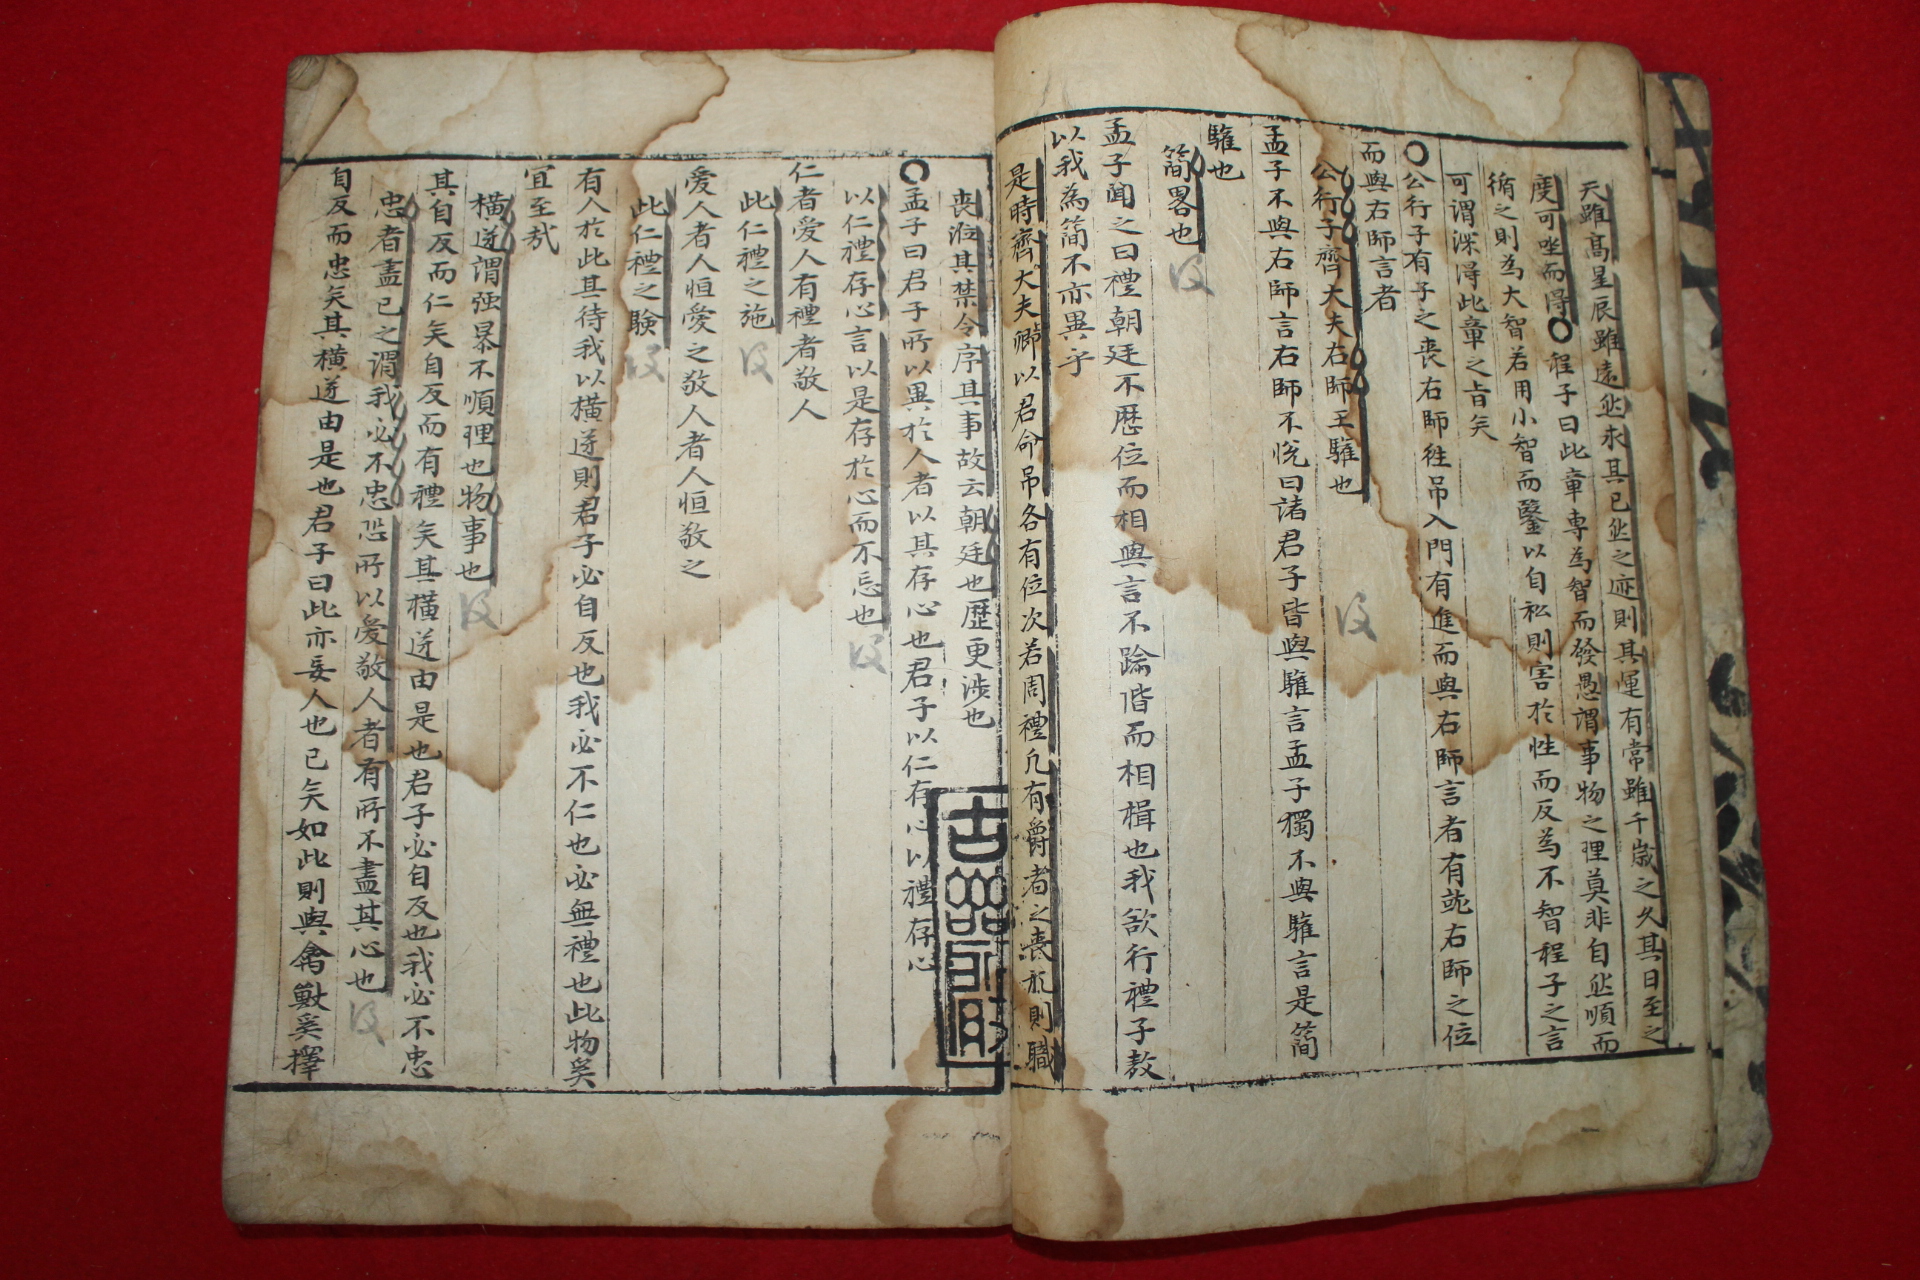 天雖高星辰雖遠然求其已然之迹則其運有常雖千歲之久其日至之
度可坐而得○程子曰此章專為智而發愚謂事物之理莫非自然順而
循之則為大智若用小智而鑿以自私則害於性而反為不智程子之言
可謂深得此章之旨矣
○公行子有子之喪右師往吊入門有進而與右師言者有就右師之位
而與右師言者
公行子齊大夫右師王驩也
孟子不與右師言右師不悅曰諸君子皆與驩言孟子獨不與驩言是簡
驩也
簡畧也
孟子聞之曰禮朝廷不歷位而相與言不踰偕而相楫也我欲行禮子敖
以我為簡不亦異乎
是時齊大夫卿以君命吊各有位次若周禮凡有爵者之喪礼則職
喪涖其禁令序其事故云朝廷也歷更涉也
○孟子曰君子所以異於人者以其存心也君子以仁存心以禮存心
以仁禮存心言以是存於心而不忘也
仁者愛人有禮者敬人
此仁禮之施
愛人者人恒愛之敬人者人恒敬之
此仁禮之驗
有人於此其待我以橫逆則君子必自反也我必不仁也必無禮也此物奚
宜至㢤
橫逆謂强暴不順理也物事也
其自反而仁矣自反而有禮矣其橫逆由是也君子必自反也我必不忠
忠者盡已之謂我必不忠恐所以愛敬人者有所不盡其心也
自反而忠矣其橫逆由是也君子曰此亦妄人也已矣如此則與禽獸奚擇